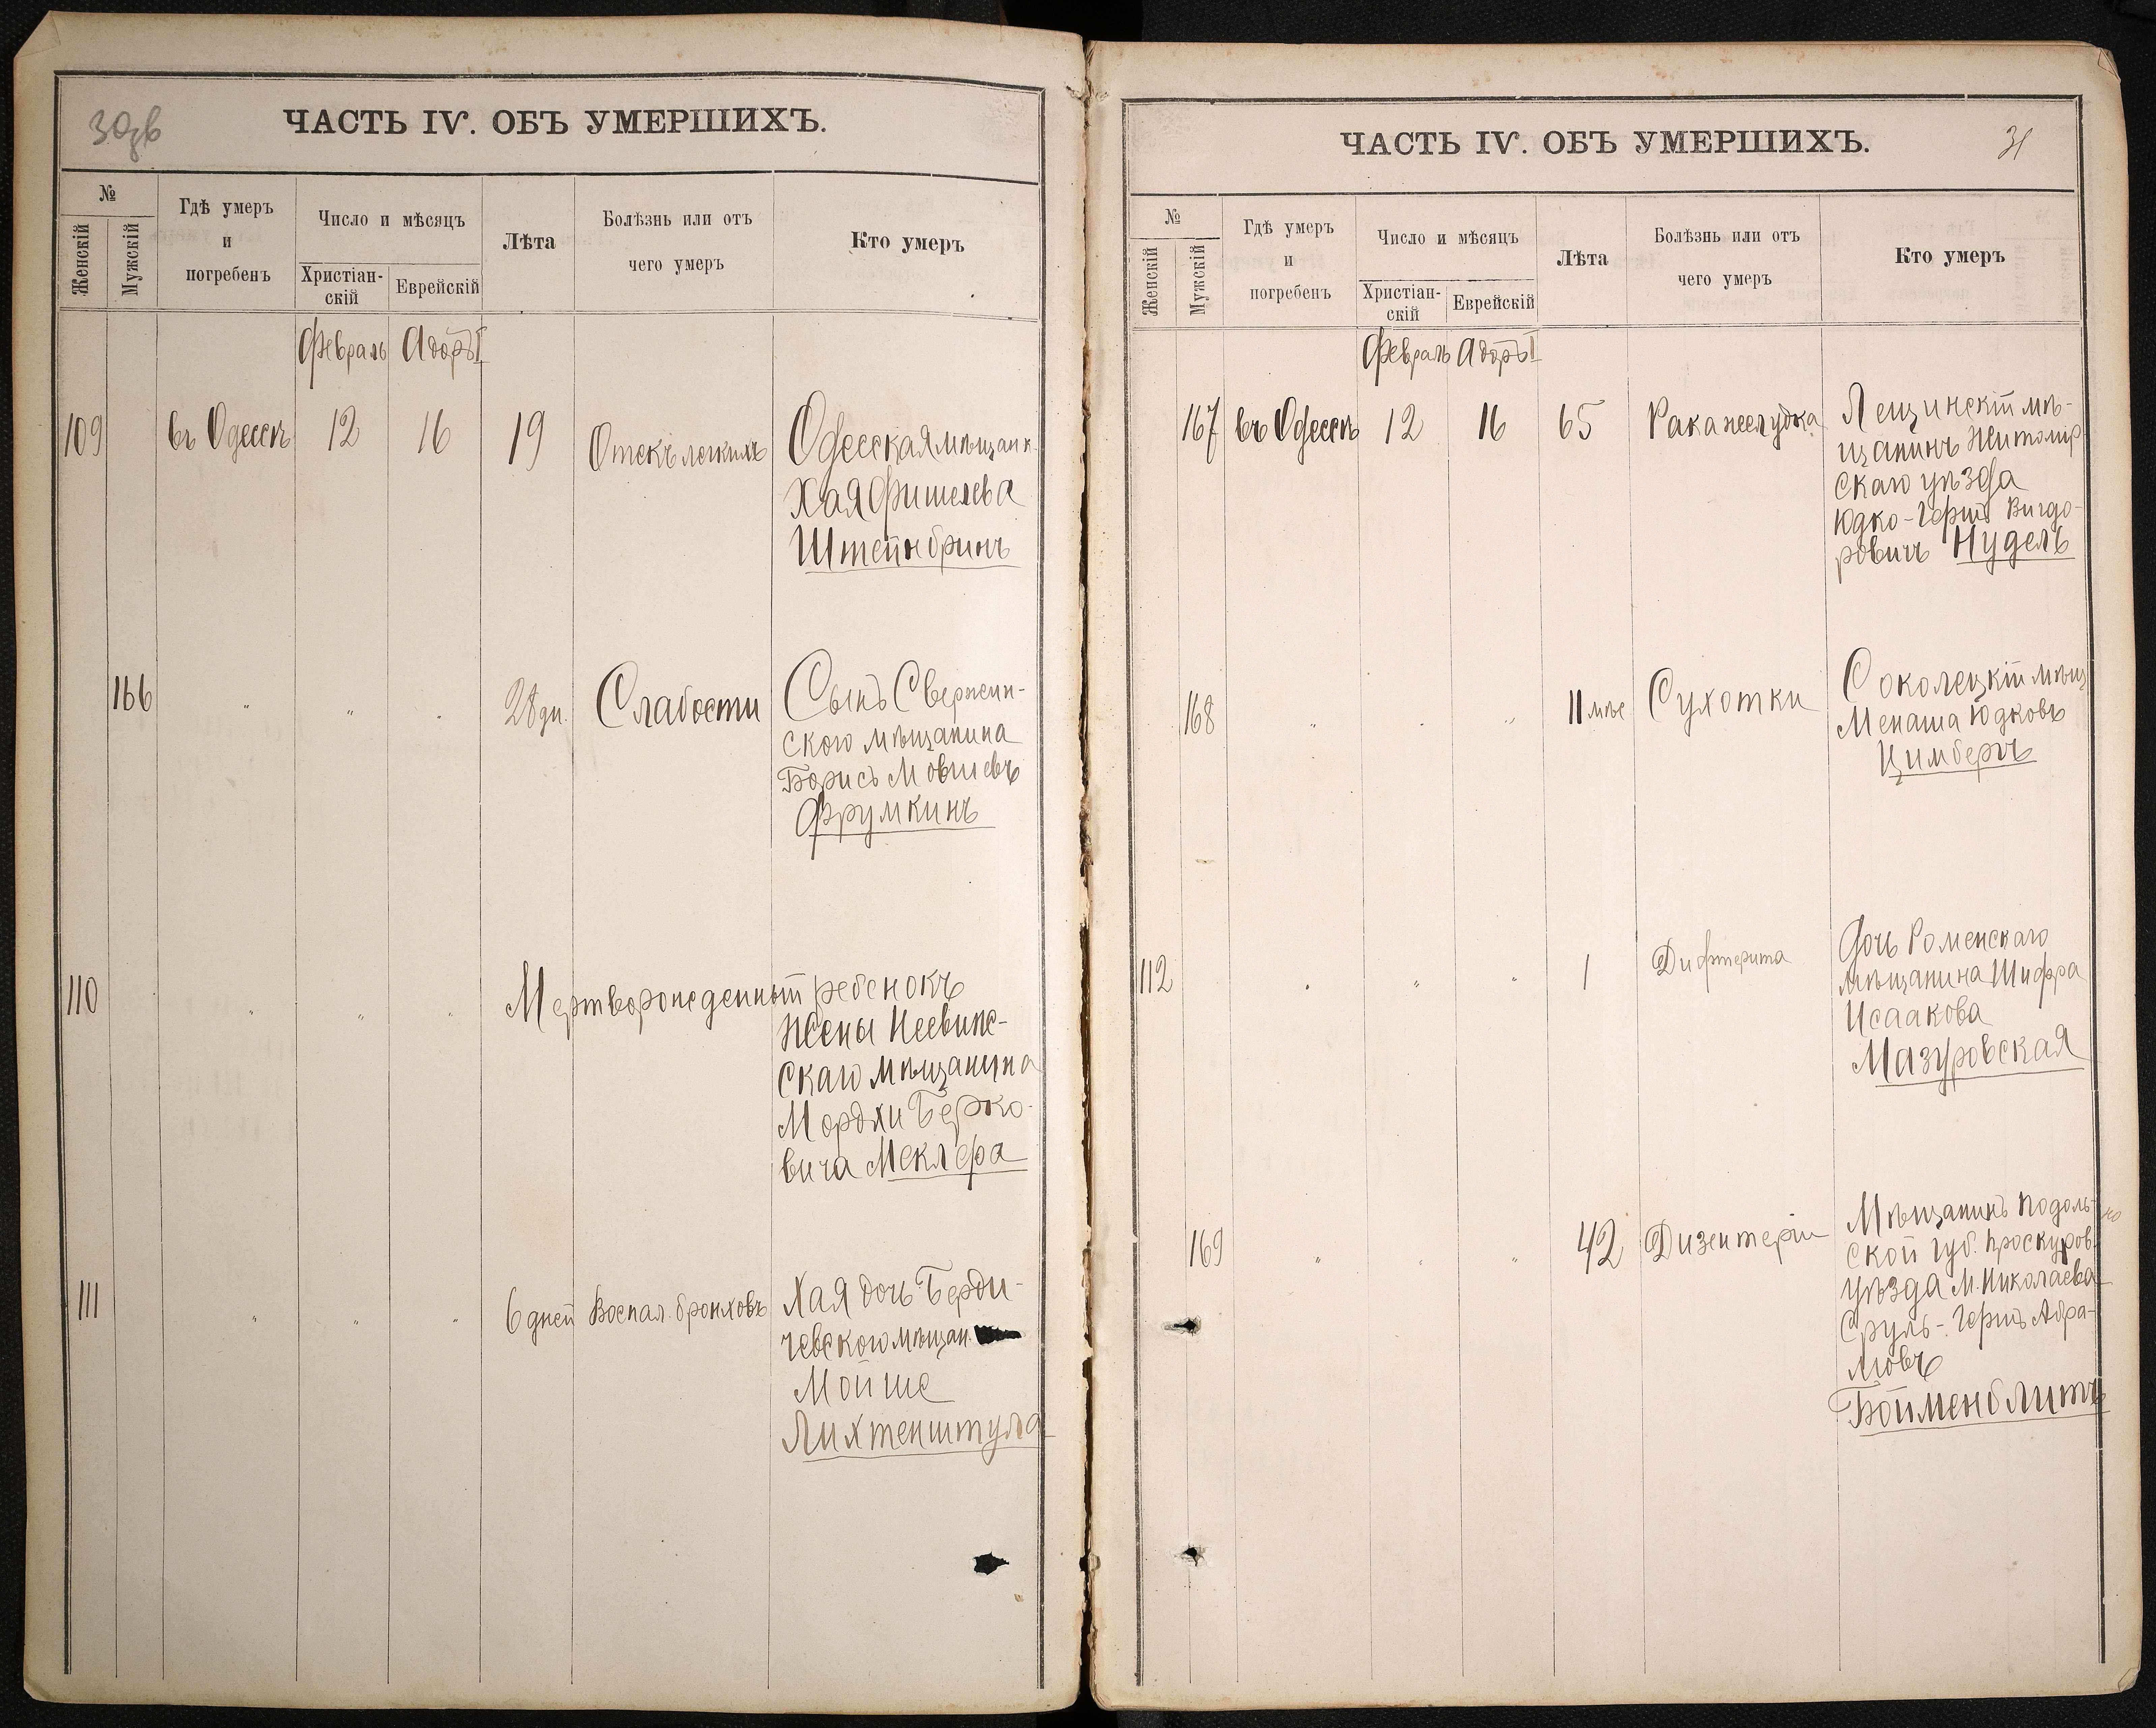 30об
ЧАСТЬ IV. ОБЪ УМЕРШИХЪ.
№
Женскій
Мужскій
Гдѣ умеръ
и
погребенъ
Число и мѣсяцъ
Христіан-
скій
Еврейскій
Лѣта
Болѣзнь или отъ
чего умеръ
Кто умеръ
Февраль Адоръ I
109 въ Одессѣ 12 16 19 Отекъ легкихъ Одесская мѣщанк.
Хая Фишелева
Штейнбринъ
166 " " " 28 дн. Слабости Сынъ Свержин-
ского мѣщанина
Борисъ Мовшевъ
Фрумкинъ
110 " " " Мертворожденный ребенокъ
жены
скаго мѣщанина
Мордхи Берко-
вича Меклера
111 " " " 6 дней Воспал. бронховъ Хая дочь Берди-
чевского мѣщан.
Мойше
Лихтенштула
ЧАСТЬ IV. ОБЪ УМЕРШИХЪ.
31
№
Женскій
Мужскій
Гдѣ умеръ
и
погребенъ
Число и мѣсяцъ
Христіан-
скій
Еврейскій
Лѣта
Болѣзнь или отъ
чего умеръ
Кто умеръ
Февраль Адоръ I
167 въ Одессѣ 12 16 65 Рака желудка Лещинскій мѣ-
щанинъ Житомир
скаго уѣзда
Юдко-Гершъ Вигдо-
ровичъ Нудель
168 " " " 11 мѣс Сухотки Соколецкій мѣщ
Менаша Юдковъ
Цимберъ
112 " " " 1 Дифтерита Дочь Роменскаго
мѣщанина Шифра
Исаакова
Мазуровская
169 " " " 42 Дизентеріи Мѣщанинъ Подоль-
ской губ. Проскуров.
уѣзда М. Николаева
Сруль-Гершъ Абра-
мовъ
Бойменблитъ